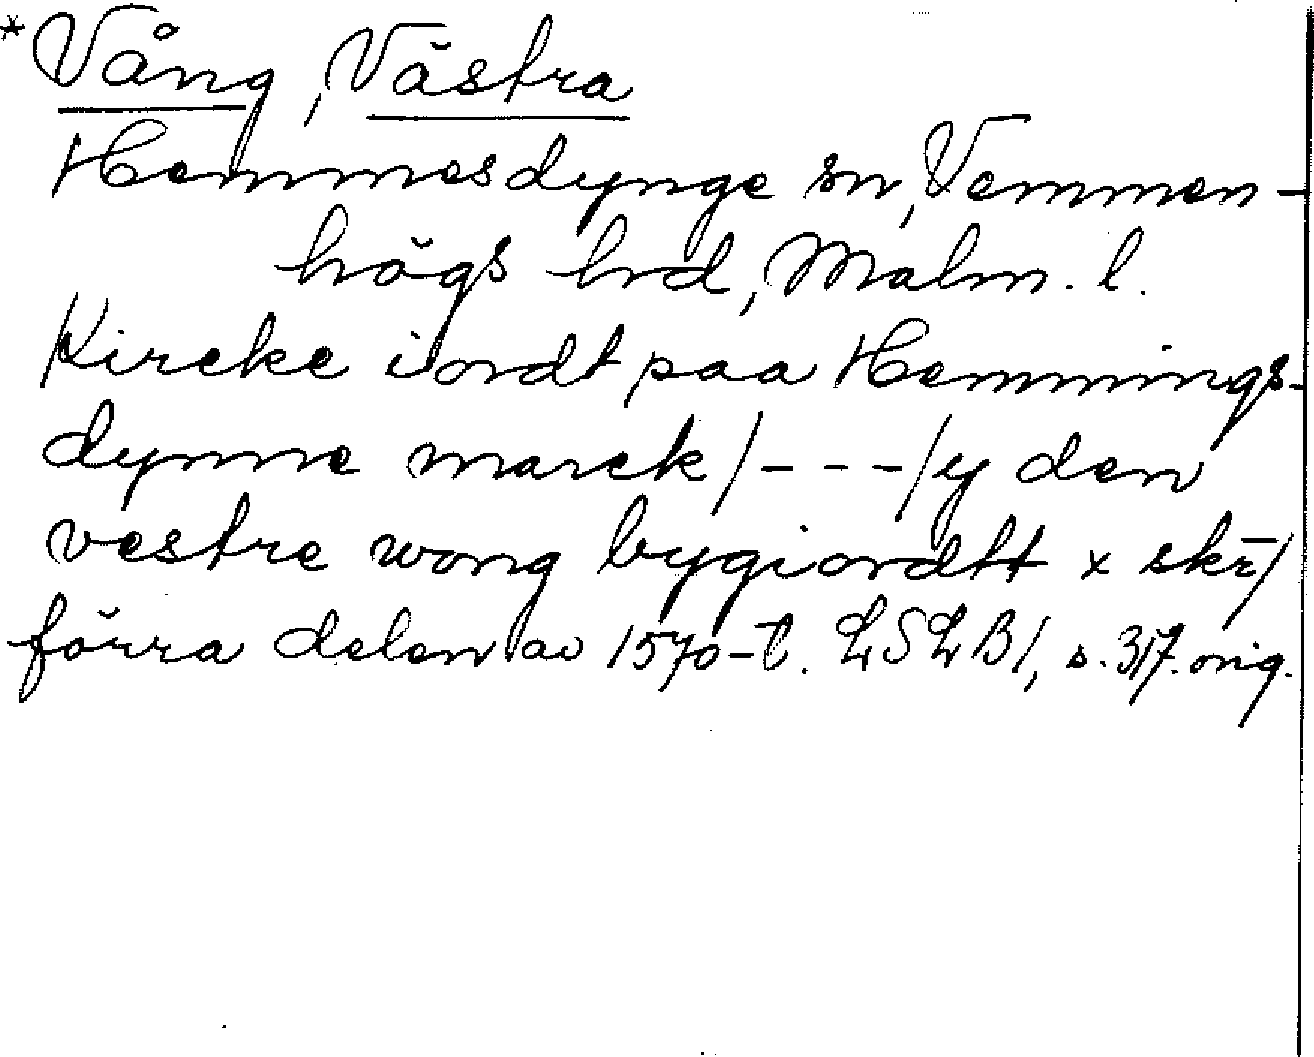 *Vång, Västra
Hemmesdynge sn, Vemmen-
högs hrd, Malm. l.
Kircke iordt paa Hemmings-
dynne marck /---/ y den
vestre wong bygiordtt x skr/
förra delen av 1570-t. LSLB1, s. 317. orig.